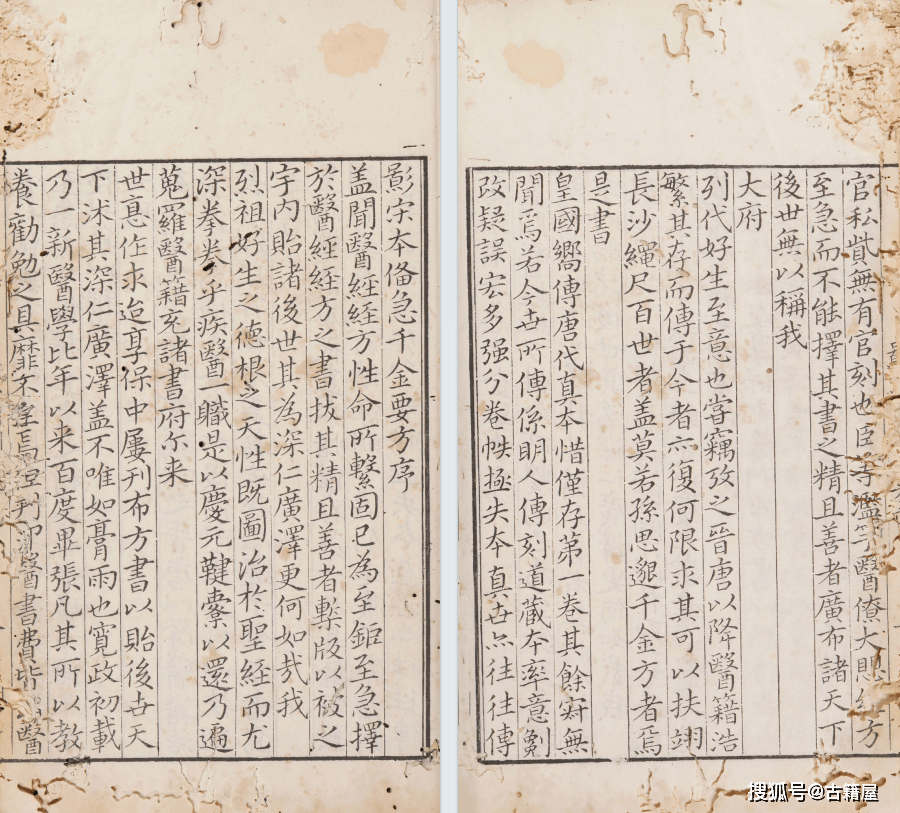 影宋本俻急千金要方序
蓋聞醫經經方性命所繫固已為至鉅至急擇
於醫經經方之書拔其精且善者鍥版以被之
宇内貽諸後世其為深仁廣澤更何如㢤我
烈祖好生之德根之天性既圖治於聖經而尤
深拳拳乎疾醫一職是以慶元鞬櫜以還乃遍
蒐羅醫籍充諸書府尒来
世悳作求迨享保中屢刊布方書以貽後世天
下沭其深仁廣澤蓋不唯如膏雨也寛政初載
乃一新醫學比年以来百度畢張凡其所以教
養勸勉之具靡不焉刊印醫書費皆醫
官私貲無有官刻也臣等濫竽醫僚大思經方
至急而不能擇其書之精且善者廣布諸天下
後世無以稱我
大府
列代好生至意也甞竊攷之晉唐以降醫籍浩
繁其存而傳于今者亦復何限求其可以扶翊
長沙繩尺百世者蓋莫若孫思邈千金方者焉
是書
皇國嚮傳唐代真本惜僅存苐一卷其餘寂無
聞焉若今世所傳係明人傳刻道藏本率意劖
改疑誤宏多强分卷帙極失本真世亦往往傳
搜狐号@古籍屋